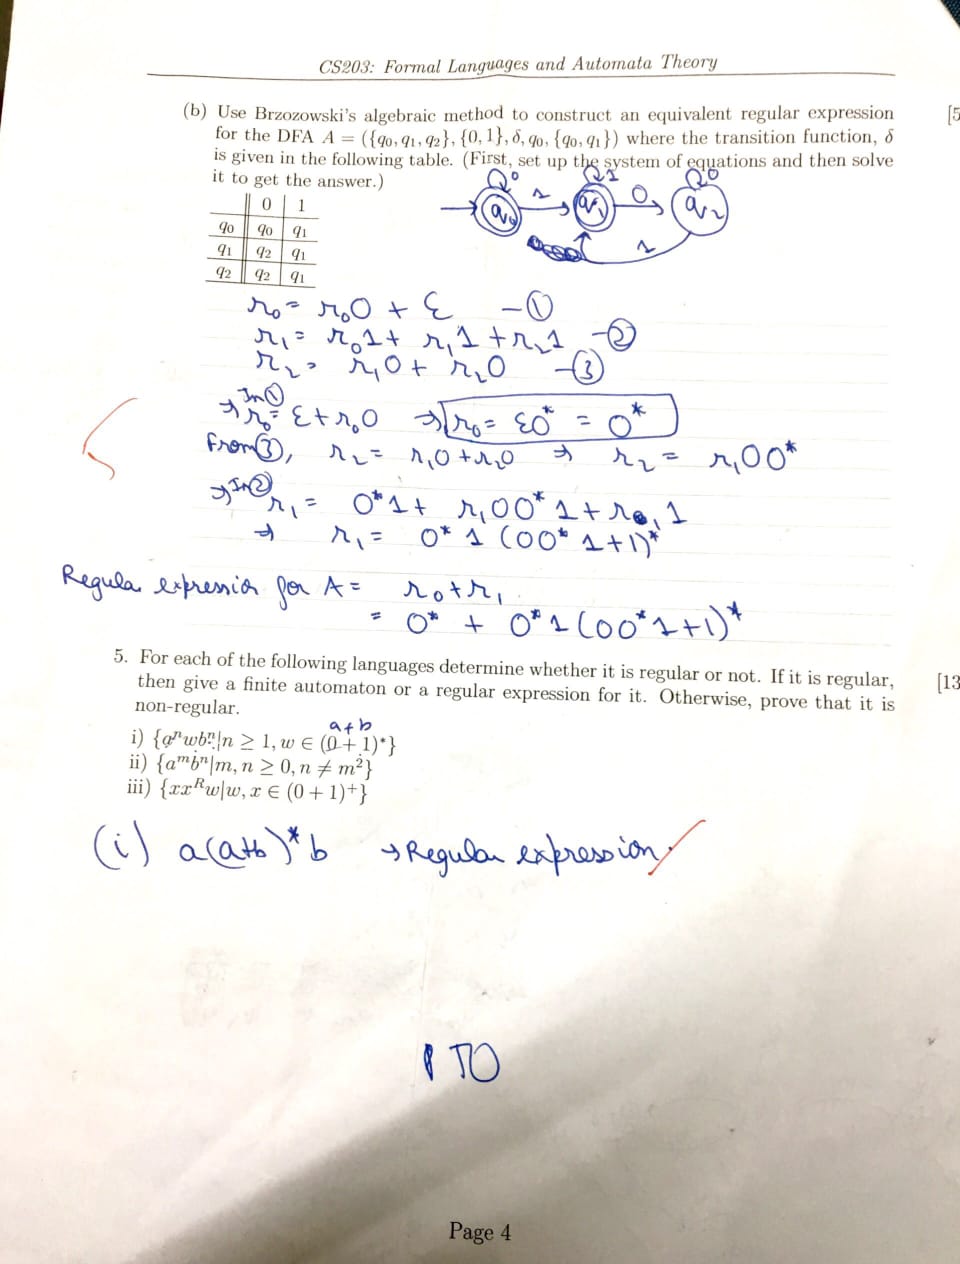 CS203: Formal Languages and Automata Theory
(b) Use Brzozowski's algebraic method to construct an equivalent regular expression [5
for the DFA A = ({q₀, q₁, q₂}, {0, 1}, δ, q₀, {q₀, q₁}) where the transition function, δ
is given in the following table. (First, set up the system of equations and then solve
it to get the answer.)
0 1
q₀ q₀ q₁
q₁ q₂ q₁
q₂ q₂ q₁
0 1 0
q₀ 1 q₁ 0 q₂
1
r₀ = r₀0 + ε - ①
r₁ = r₀1 + r₁1 + r₂1 - ②
r₂ = r₁0 + r₂0 - ③
In ①
⇒ r₀ = ε + r₀0 ⇒ r₀ = ε0* = 0*
From ③, r₂ = r₁0 + r₂0 ⇒ r₂ = r₁00*
⇒ In ② r₁ = 0*1 + r₁00*1 + r₁1
⇒ r₁ = 0*1(00*1+1)*
Regular expression for A = r₀ + r₁
= 0* + 0*1(00*1+1)*
5. For each of the following languages determine whether it is regular or not. If it is regular, [13
then give a finite automaton or a regular expression for it. Otherwise, prove that it is
non-regular.
a+b
i) {aⁿwbⁿ|n ≥ 1, w ∈ (0 + 1)*}
ii) {aᵐbⁿ|m, n ≥ 0, n ≠ m²}
iii) {xxᴿw|w, x ∈ (0 + 1)⁺}
(i) a(a+b)*b → Regular expression.
PTO
Page 4